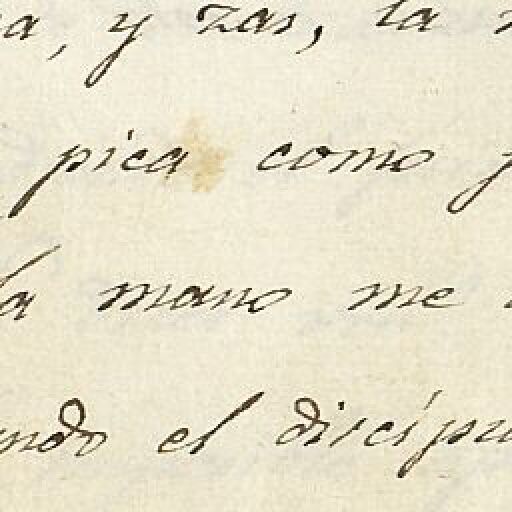 a, y zas, la
pica como
la mano me
ndo el discípu